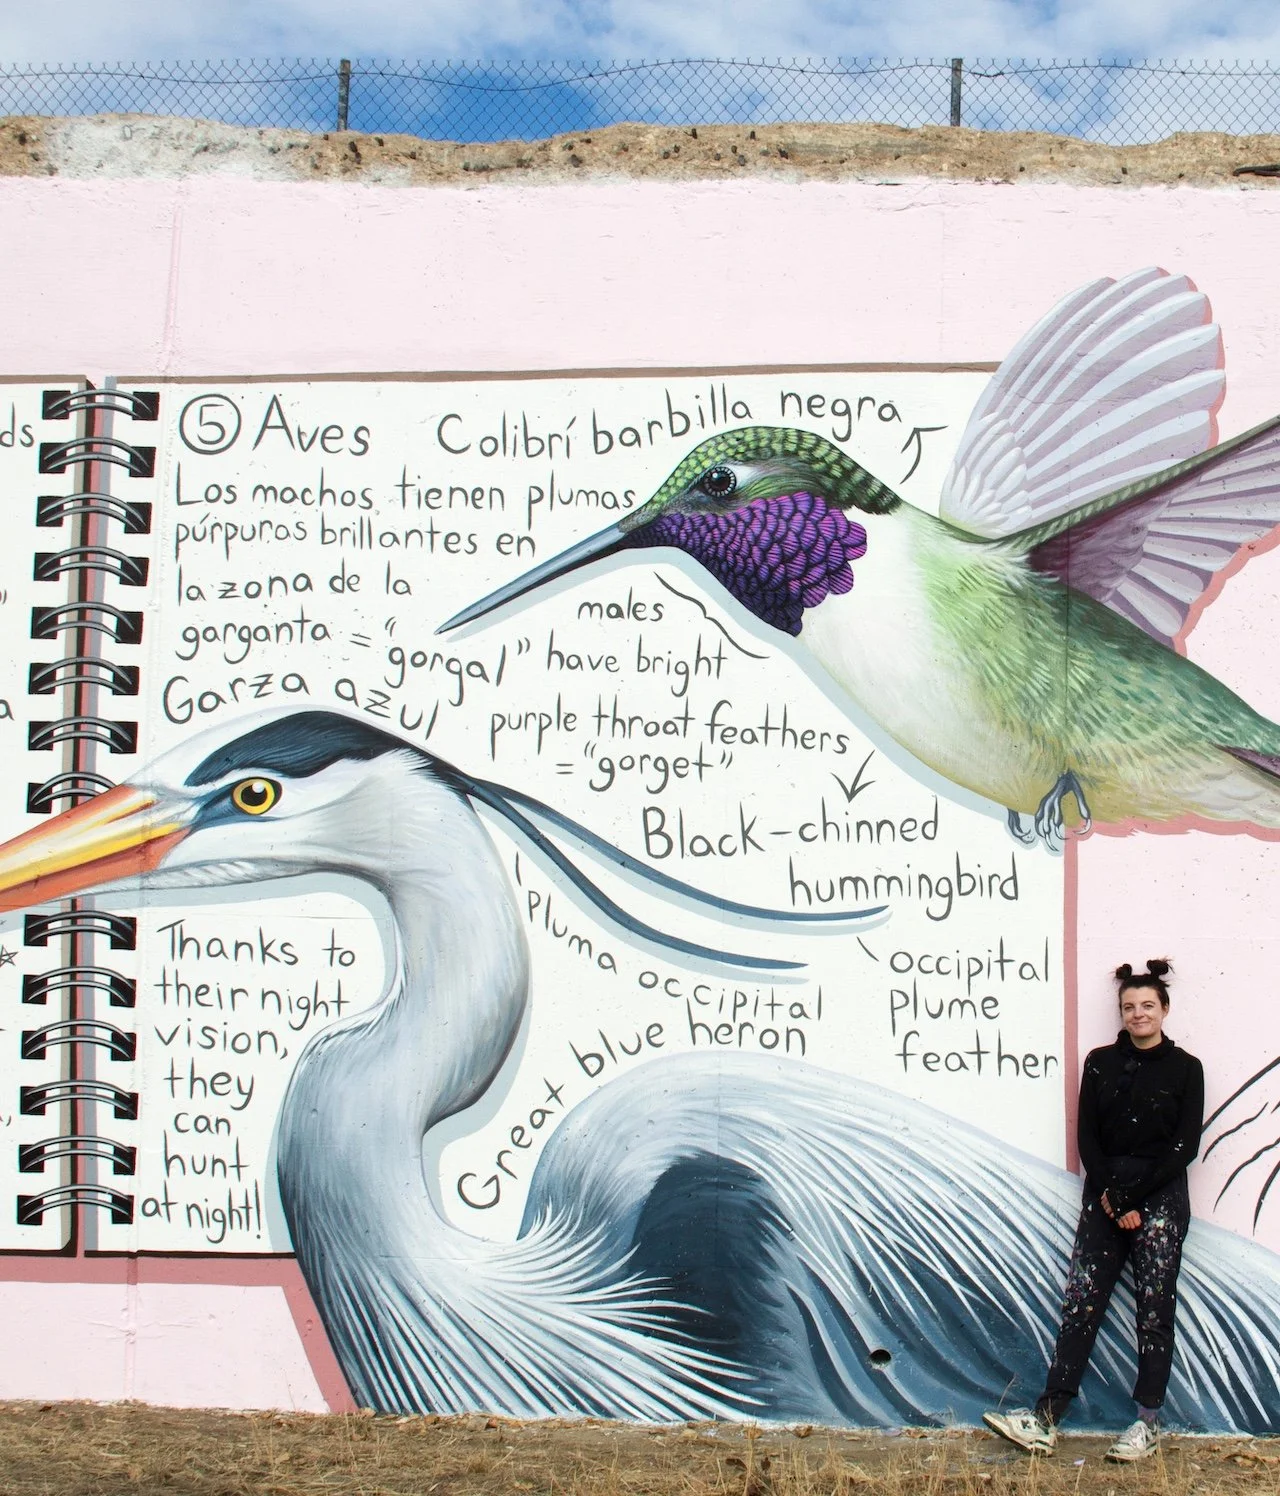 ds
a
⑤ Aves
Colibrí barbilla negra
Los machos tienen plumas
púrpuras brillantes en
la zona de la
garganta = "
gorgal"
males
have bright
purple throat feathers
= "gorget"
Black-chinned
hummingbird
Garza azul
Pluma occipital
occipital
plume
feather
Great blue heron
Thanks to
their night
vision,
they
can
hunt
at night!